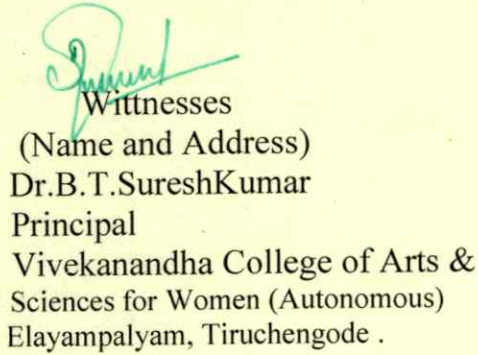 Wittnesses
(Name and Address)
Dr.B.T.SureshKumar
Principal
Vivekanandha College of Arts &
Sciences for Women (Autonomous)
Elayampalyam, Tiruchengode .